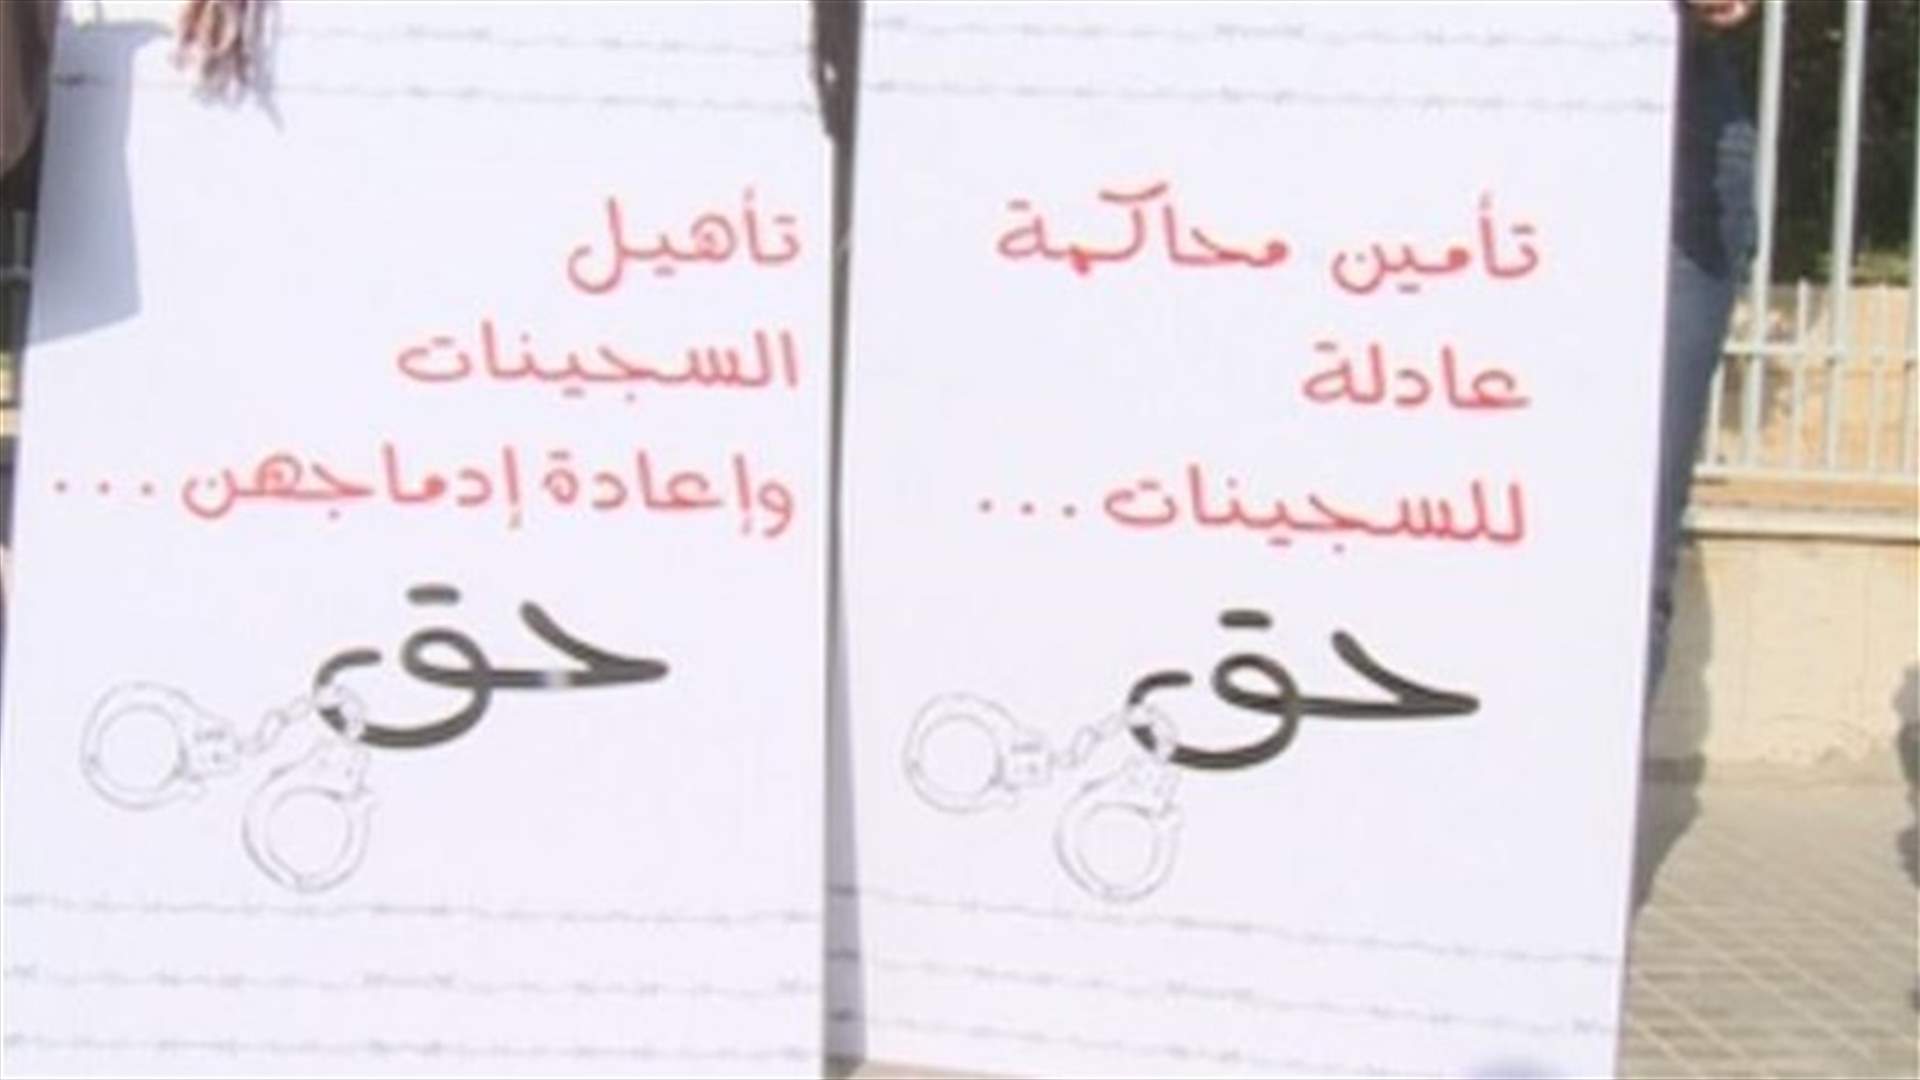 تأمين محاكمة
عادلة
للسجينات...
حق
تأهيل
السجينات
وإعادة إدماجهن...
حق